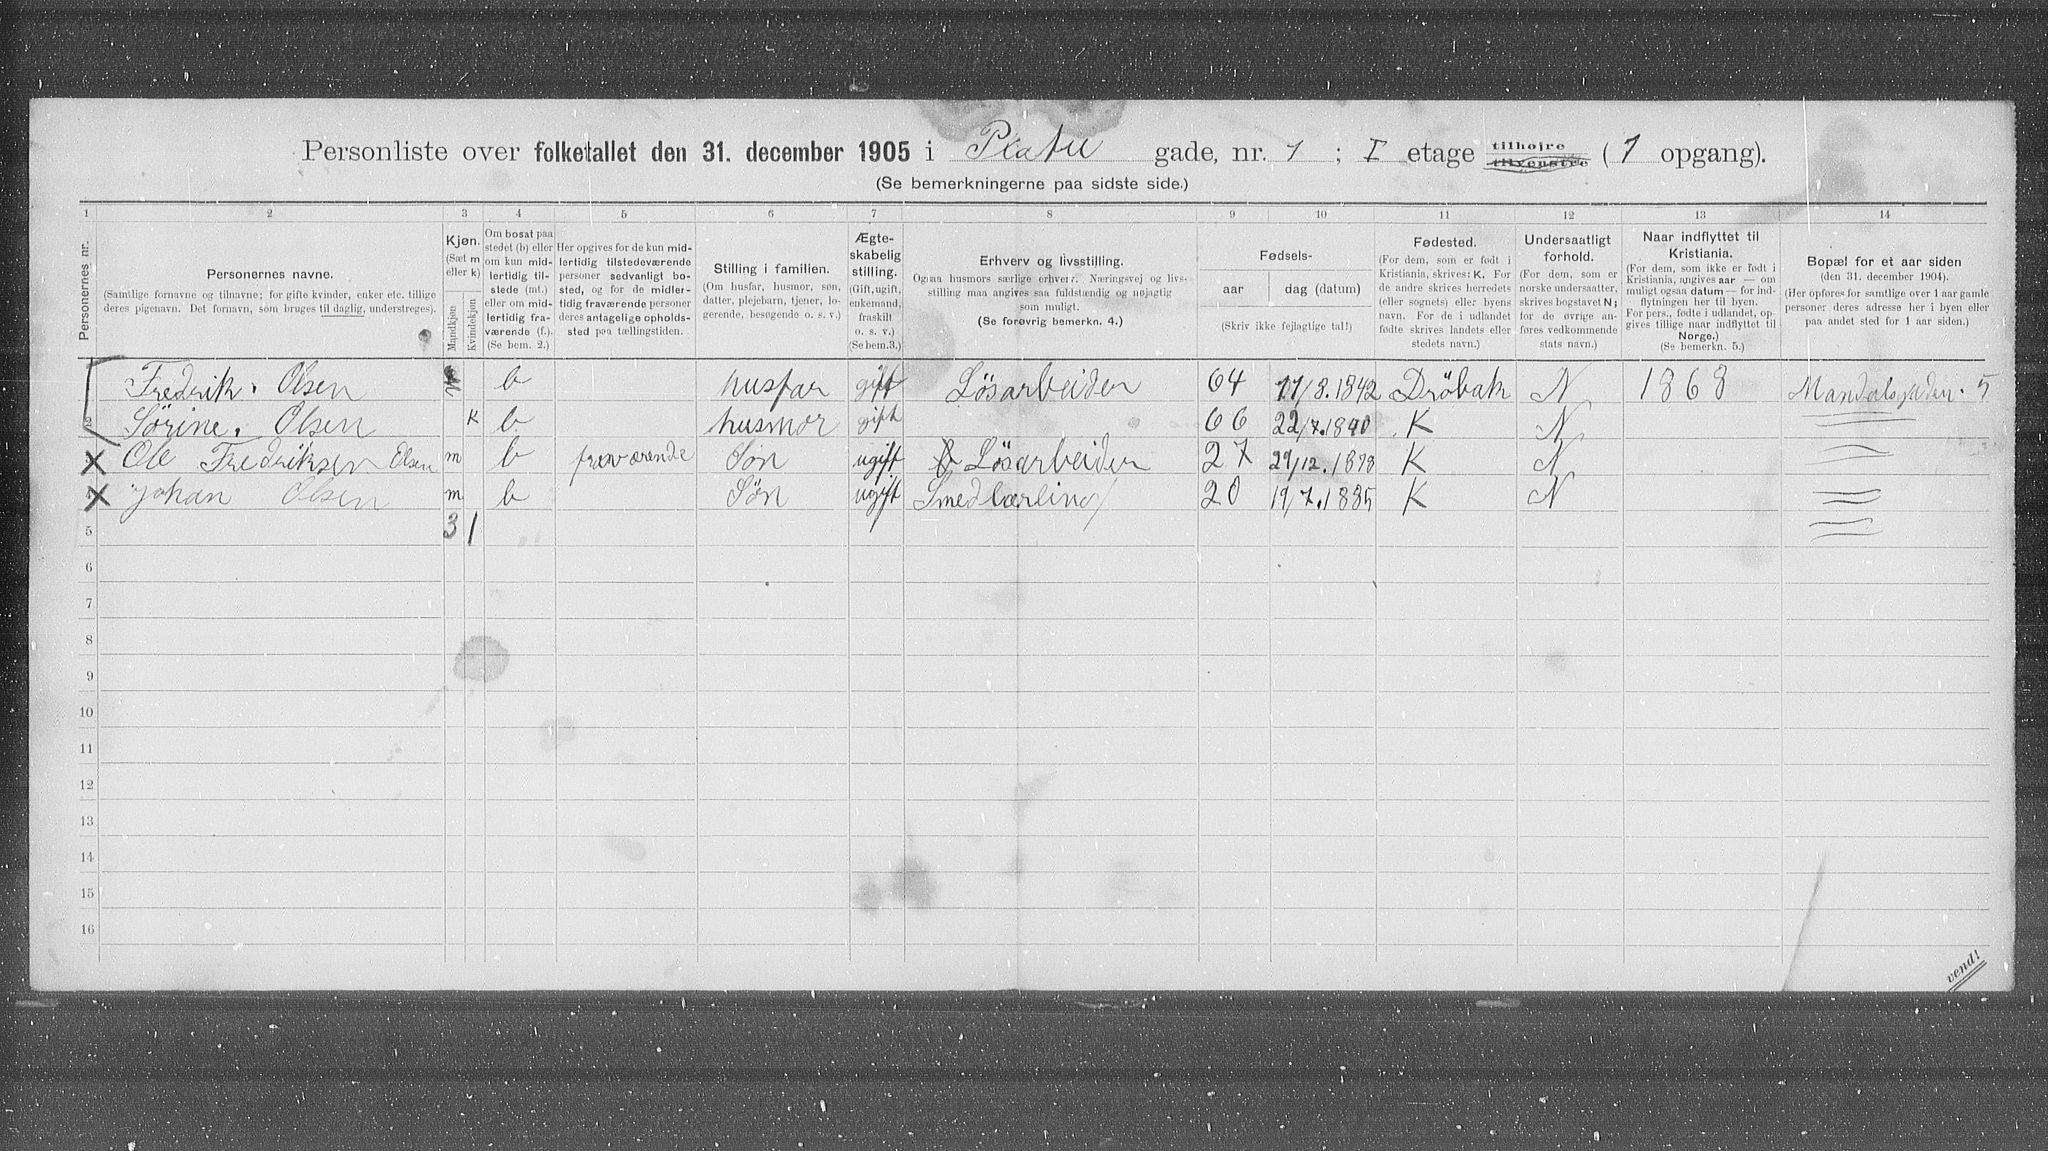 Personliste over folketallet den 31. december 1905 i Platu gade, nr. 1 ; I etage tilhøjre tilvenstre (1 opgang).
(Se bemerkningerne paa sidste side.)
1 2 3 4 5 6 7 8 9 10 11 12 13 14
Personernes nr.
Personernes navne.
(Samtlige fornavne og tilnavne; for gifte kvinder, enker etc. tillige
deres pigenavn. Det fornavn, som bruges til daglig, understreges).
Kjøn.
(Sæt m
eller k)
Mandkjøn
Kvindekjøn
Om bosat paa
stedet (b) eller
om kun mid-
lertidig til-
stede (mt.)
eller om mid-
lertidig fra-
værende (f.).
(Se bem. 2.)
Her opgives for de kun mid-
lertidig tilstedeværende
personer sedvanligt bo-
sted, og for de midler-
tidig fraværende personer
deres antagelige opholds-
sted paa tællingstiden.
Stilling i familien.
(Om husfar, husmor, søn,
datter, plejebarn, tjener, lo-
gerende, besøgende o. s. v.)
Ægte-
skabelig
stilling.
(Gift, ugift,
enkemand,
fraskilt
o. s. v.)
(Se bem.3.)
Erhverv og livsstilling.
Ogsaa husmors særlige erhverv. Næringsvej og livs-
stilling maa angives saa fuldstændig og nøjagtig
som muligt.
(Se forøvrig bemerkn. 4.)
Fødsels-
aar dag (datum)
(Skriv ikke fejlagtige tal!)
Fødested.
(For dem, som er født i
Kristiania, skrives: K. For
de andre skrives herredets
(eller sognets) eller byens
navn. For de i udlandet
fødte skrives landets eller
stedets navn.)
Undersaatligt
forhold.
(For dem, som er
norske undersaatter,
skrives bogstavet N;
for de øvrige an-
føres vedkommende
stats navn.)
Naar indflyttet til
Kristiania.
(For dem, som ikke er født i
Kristiania, angives aar — om
muligt ogsaa datum — for ind-
flytningen her til byen.
For pers., fødte i udlandet, op-
gives tillige naar indflyttet til
Norge.)
(Se bemerkn. 5.)
Bopæl for et aar siden
(den 31. december 1904).
(Her opføres for samtlige over 1 aar gamle
personer deres adresse her i byen eller
paa andet sted for 1 aar siden.)
Fredrik. Olsen m b husfar gift Løsarbeider 64 17/8.1842 Drøbak N 1868 Mandalsgaden. 5
2 Sørine. Olsen K b husmor gift 66 22/7.1840 K N
3 Ole Fredriksen Olsen m b fraværende Søn ugift Løsarbeider 27 29/12.1878 K N
4 Johan Olsen m b Søn ugift Smedlærling 20 19/7.1885 K N
5 3 1
6
7
8
9
10
11
12
13
14
15
16
vend!